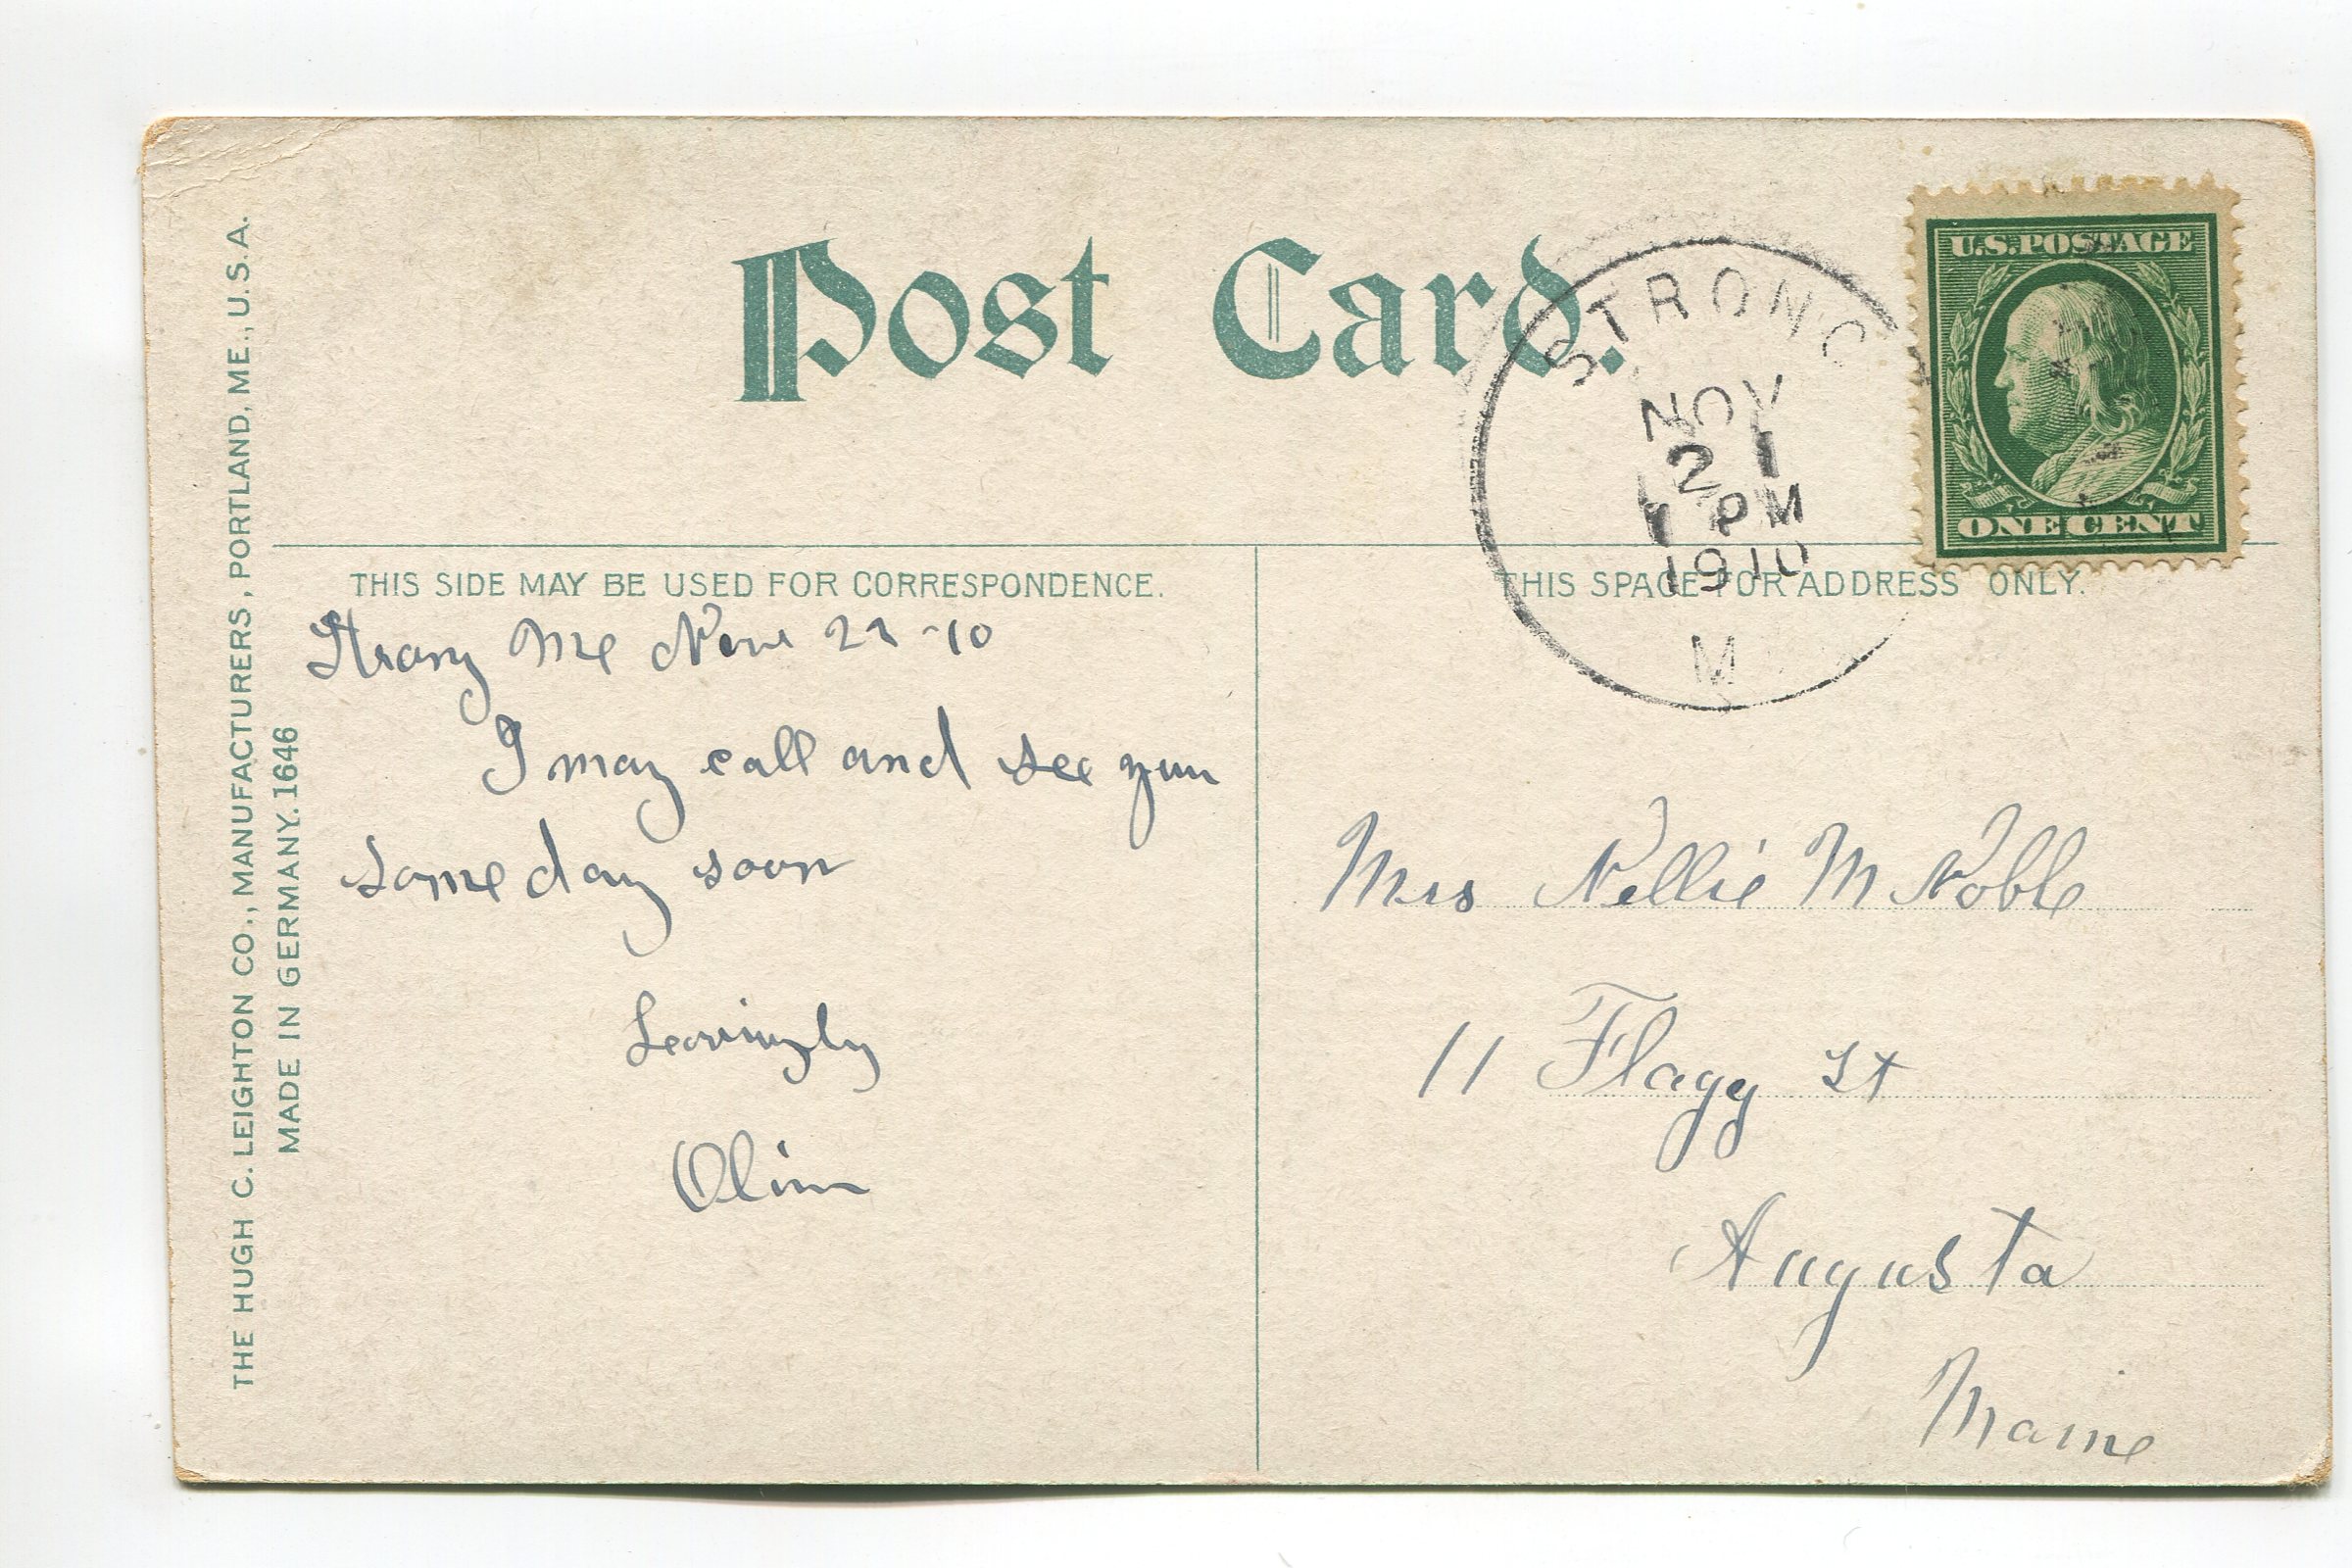 Post Card.
STRONG
NOV
21
1 PM
1910
M
U.S. POSTAGE
ONE CENT
THE HUGH C. LEIGHTON CO., MANUFACTURERS, PORTLAND, ME., U.S.A.
MADE IN GERMANY. 1646
THIS SIDE MAY BE USED FOR CORRESPONDENCE.
Strong Me Nov 21 -10
I may call and see you
some day soon
Lovingly
Olin
THIS SPACE FOR ADDRESS ONLY.
Mrs Nellie M Noble
11 Flagg St
Augusta
Maine